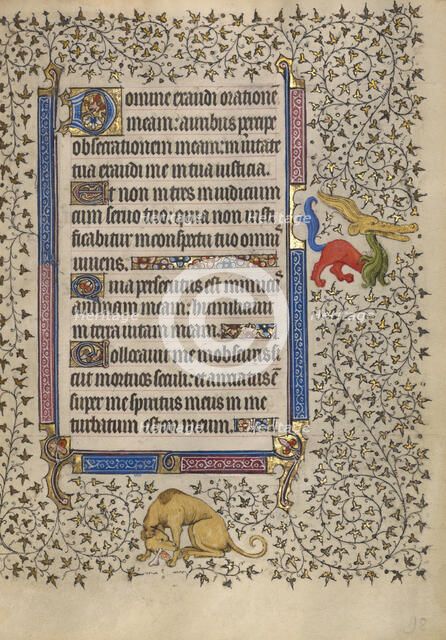 Domine exaudi orationē
meam: auribus percipe
obsecrationem meam: in uitate
tua exaudi me in tua iusticia.
Et non intres in iudicium
cum seruo tuo: quia non iusti
ficabitur in conspectu tuo omnis
uiuens.
Quia persecutus est inimicꝰ
animam meam: humiliauit
in terra uitam meam.
Collocauit me in obscuris si
cut mortuos seculi: et anxiatus ē
super me spiritus meus in me
turbatum est cor meum.
Heritage